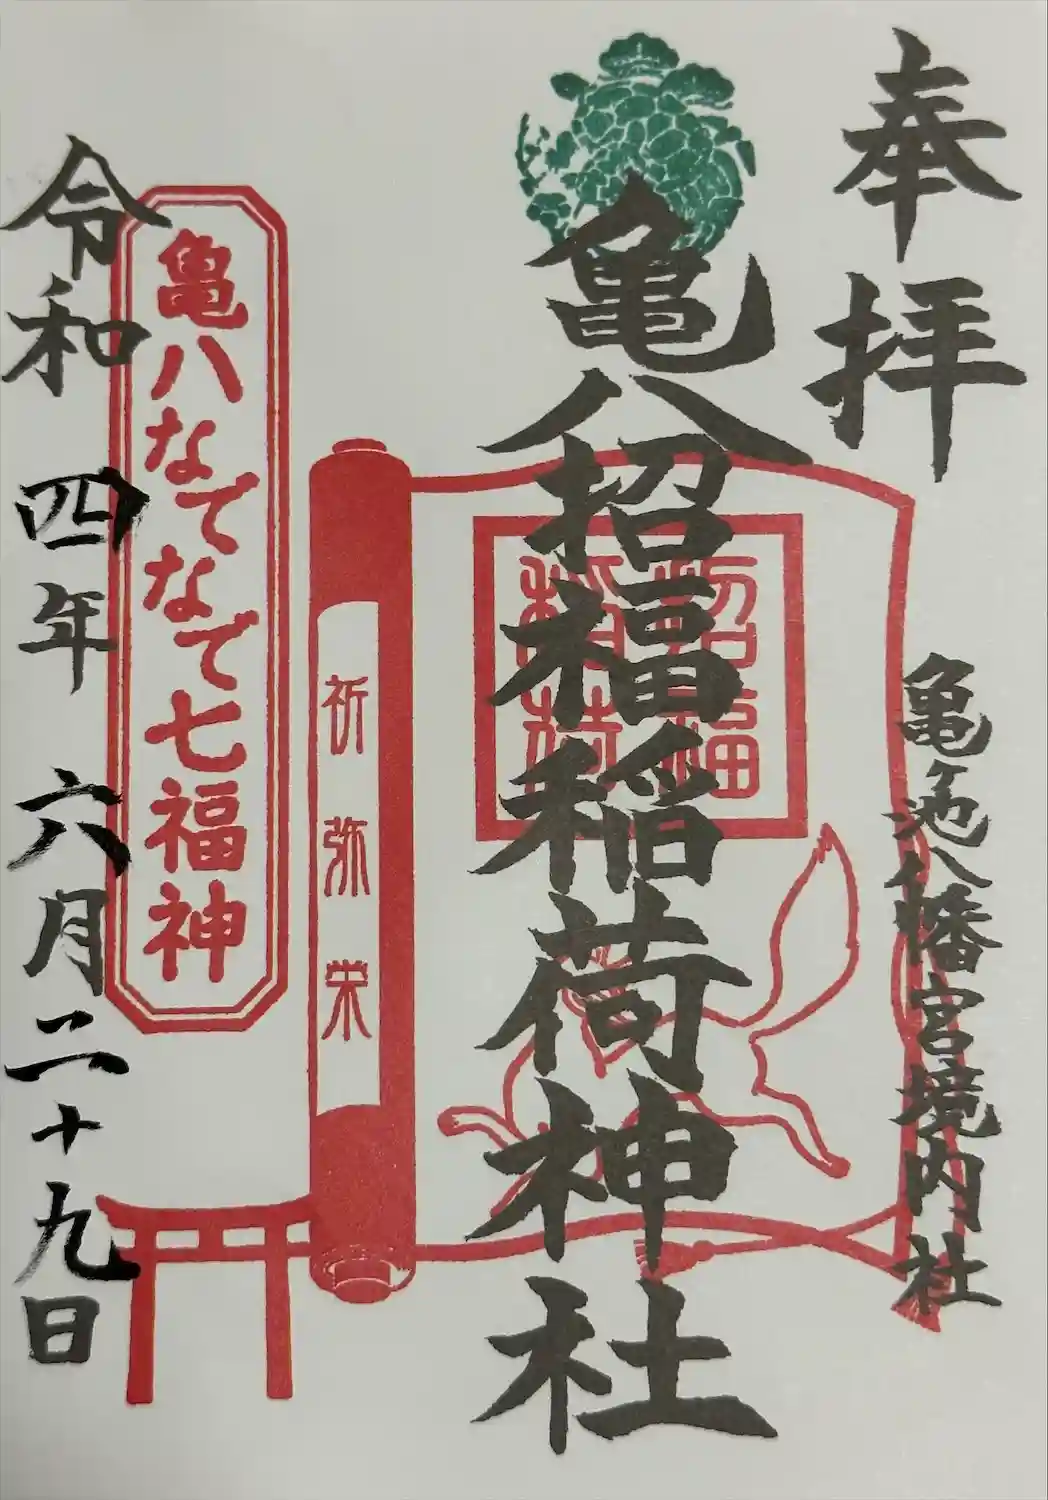 奉拝
亀ヶ池八幡宮境内社
亀八招福稲荷神社
招福
稲荷
祈弥栄
亀八なてなで七福神
令和四年六月二十九日